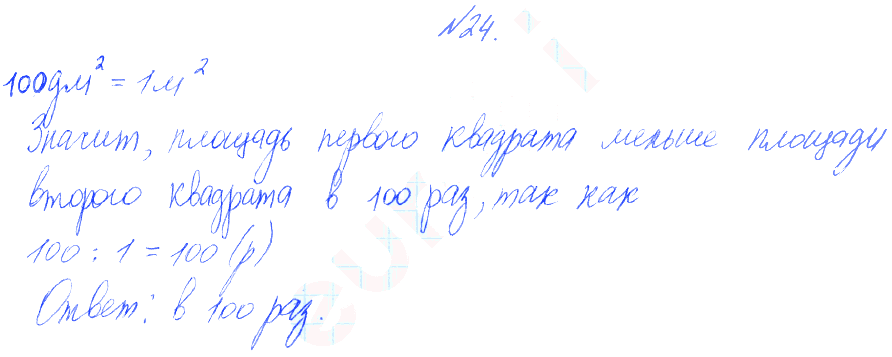 №24.
100дм² = 1м²
Значит, площадь первого квадрата меньше площади
второго квадрата в 100 раз, так как
100 : 1 = 100 (р)
Ответ: в 100 раз.